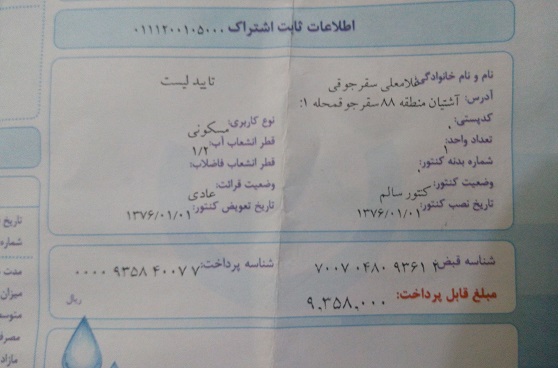 اطلاعات ثابت اشتراک ۰۱۱۱۲۰۰۱۰۵۰۰۰
نام و نام خانوادگی: غلامعلی سقرجوقی
تایید لیست
آدرس: آشتیان منطقه ۸۸ سقرجوقمحله ۱:
کدپستی: ۰
نوع کاربری: مسکونی
تعداد واحد: ۱
قطر انشعاب آب: ۱/۲
شماره بدنه کنتور: ۰
قطر انشعاب فاضلاب:
وضعیت کنتور: کنتور سالم
وضعیت قرائت: عادی
تاریخ نصب کنتور: ۱۳۷۶/۰۱/۰۱
تاریخ تعویض کنتور: ۱۳۷۶/۰۱/۰۱
شناسه قبض: ۷۰۰۷ ۰۴۸۰ ۹۳۶۱ ۲
شناسه پرداخت: ۰۰۰۰ ۹۳۵۸ ۴۰۰۷ ۷
مبلغ قابل پرداخت: ۹,۳۵۸,۰۰۰
ریال
تاریخ
شماره
مدت
میزان
متوسط
مصرف
مازاد